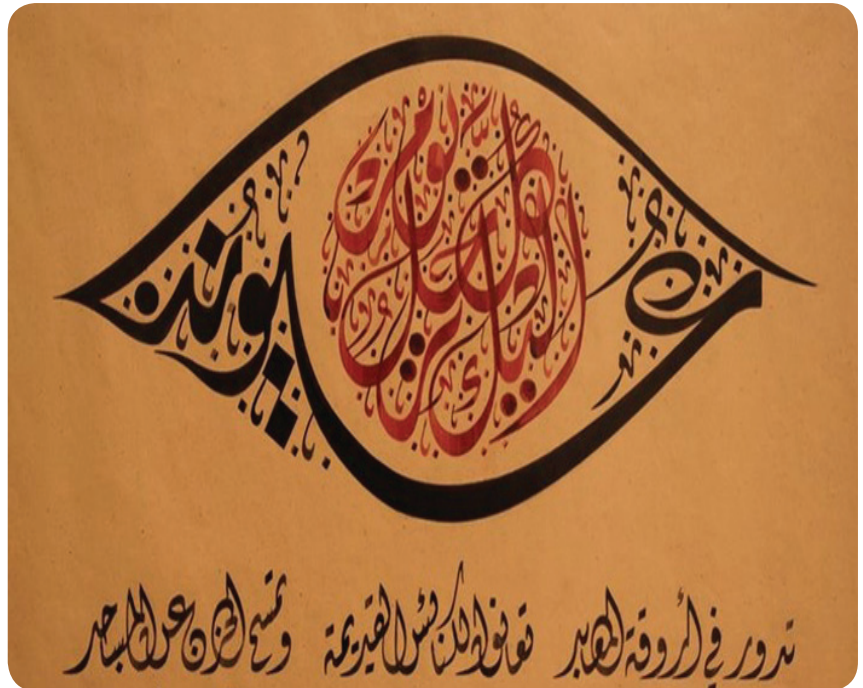 عيوننا
إليك ترحل كل يوم
تدور في أروقة المعابد تعانق الكنائس القديمة وتمسح الحزن عن المساجد